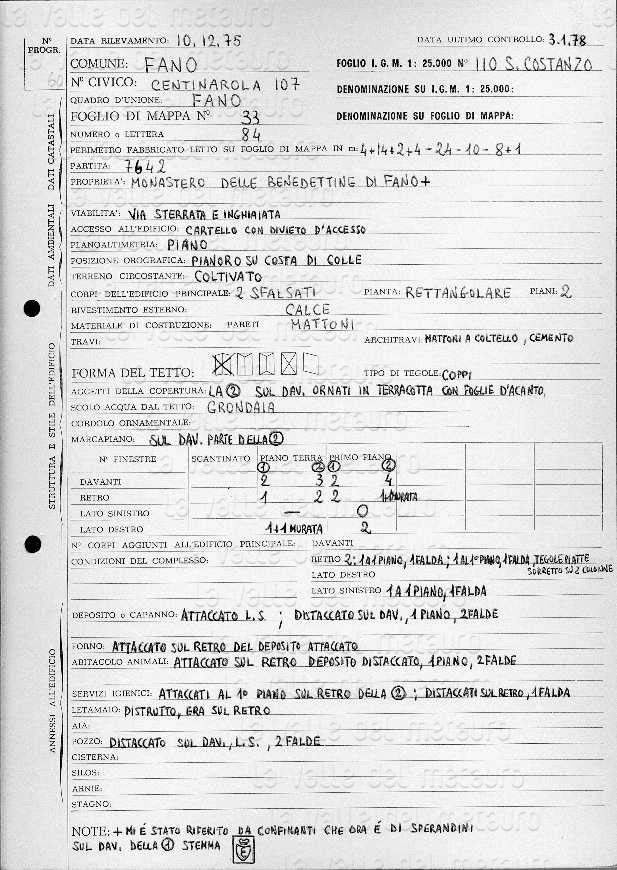 N° PROGR.
60
DATA RILEVAMENTO: 10.12.75 DATA ULTIMO CONTROLLO: 3.1.78
COMUNE: FANO FOGLIO I.G.M. 1: 25.000 N° 110 S. COSTANZO
N° CIVICO: CENTINAROLA 107 DENOMINAZIONE SU I.G.M. 1: 25.000:
QUADRO D'UNIONE: FANO
FOGLIO DI MAPPA N° 33 DENOMINAZIONE SU FOGLIO DI MAPPA:
NUMERO o LETTERA 84
PERIMETRO FABBRICATO LETTO SU FOGLIO DI MAPPA IN m: 4+14+2+4-24-10-8+1
PARTITA: 7642
PROPRIETA': MONASTERO DELLE BENEDETTINE DI FANO +
DATI CATASTALI
VIABILITA': VIA STERRATA E INGHIAIATA
ACCESSO ALL'EDIFICIO: CARTELLO CON DIVIETO D'ACCESSO
PLANOALTIMETRIA: PIANO
POSIZIONE OROGRAFICA: PIANORO SU COSTA DI COLLE
TERRENO CIRCOSTANTE: COLTIVATO
DATI AMBIENTALI
CORPI DELL'EDIFICIO PRINCIPALE: 2 SFALSATI PIANTA: RETTANGOLARE PIANI: 2
RIVESTIMENTO ESTERNO: CALCE
MATERIALE DI COSTRUZIONE: PARETI MATTONI
TRAVI: ARCHITRAVI: MATTONI A COLTELLO, CEMENTO
FORMA DEL TETTO: TIPO DI TEGOLE: COPPI
AGGETTI DELLA COPERTURA: LA ② SUL DAV. ORNATI IN TERRACOTTA CON FOGLIE D'ACANTO.
SCOLO ACQUA DAL TETTO: GRONDAIA
CORDOLO ORNAMENTALE:
MARCAPIANO: SUL DAV. PARTE DELLA ②
N° FINESTRE SCANTINATO PIANO TERRA PRIMO PIANO
① ② ① ②
DAVANTI 2 3 2 4
RETRO 1 2 2 1+1 MURATA
LATO SINISTRO — 0
LATO DESTRO 1+1 MURATA 2
STRUTTURA E STILE DELL'EDIFICIO
N° CORPI AGGIUNTI ALL'EDIFICIO PRINCIPALE: DAVANTI
CONDIZIONI DEL COMPLESSO: RETRO 2: 1 A 1 PIANO, 1 FALDA; 1 AL 1° PIANO, 1 FALDA, TEGOLE PIATTE
SORRETTO SU 2 COLONNE
LATO DESTRO
LATO SINISTRO 1 A 1 PIANO, 1 FALDA
DEPOSITO o CAPANNO: ATTACCATO L.S.; DISTACCATO SUL DAV., 1 PIANO, 2 FALDE
FORNO: ATTACCATO SUL RETRO DEL DEPOSITO ATTACCATO
ABITACOLO ANIMALI: ATTACCATO SUL RETRO DEPOSITO DISTACCATO, 1 PIANO, 2 FALDE
SERVIZI IGIENICI: ATTACCATI AL 1° PIANO SUL RETRO DELLA ②; DISTACCATI SUL RETRO, 1 FALDA
LETAMAIO: DISTRUTTO, ERA SUL RETRO
AIA:
POZZO: DISTACCATO SUL DAV., L.S., 2 FALDE
CISTERNA:
SILOS:
ARNIE:
STAGNO:
ANNESSI ALL'EDIFICIO
NOTE: + MI É STATO RIFERITO DA CONFINANTI CHE ORA É DI SPERANDINI
SUL DAV. DELLA ① STEMMA
la valle del metauro